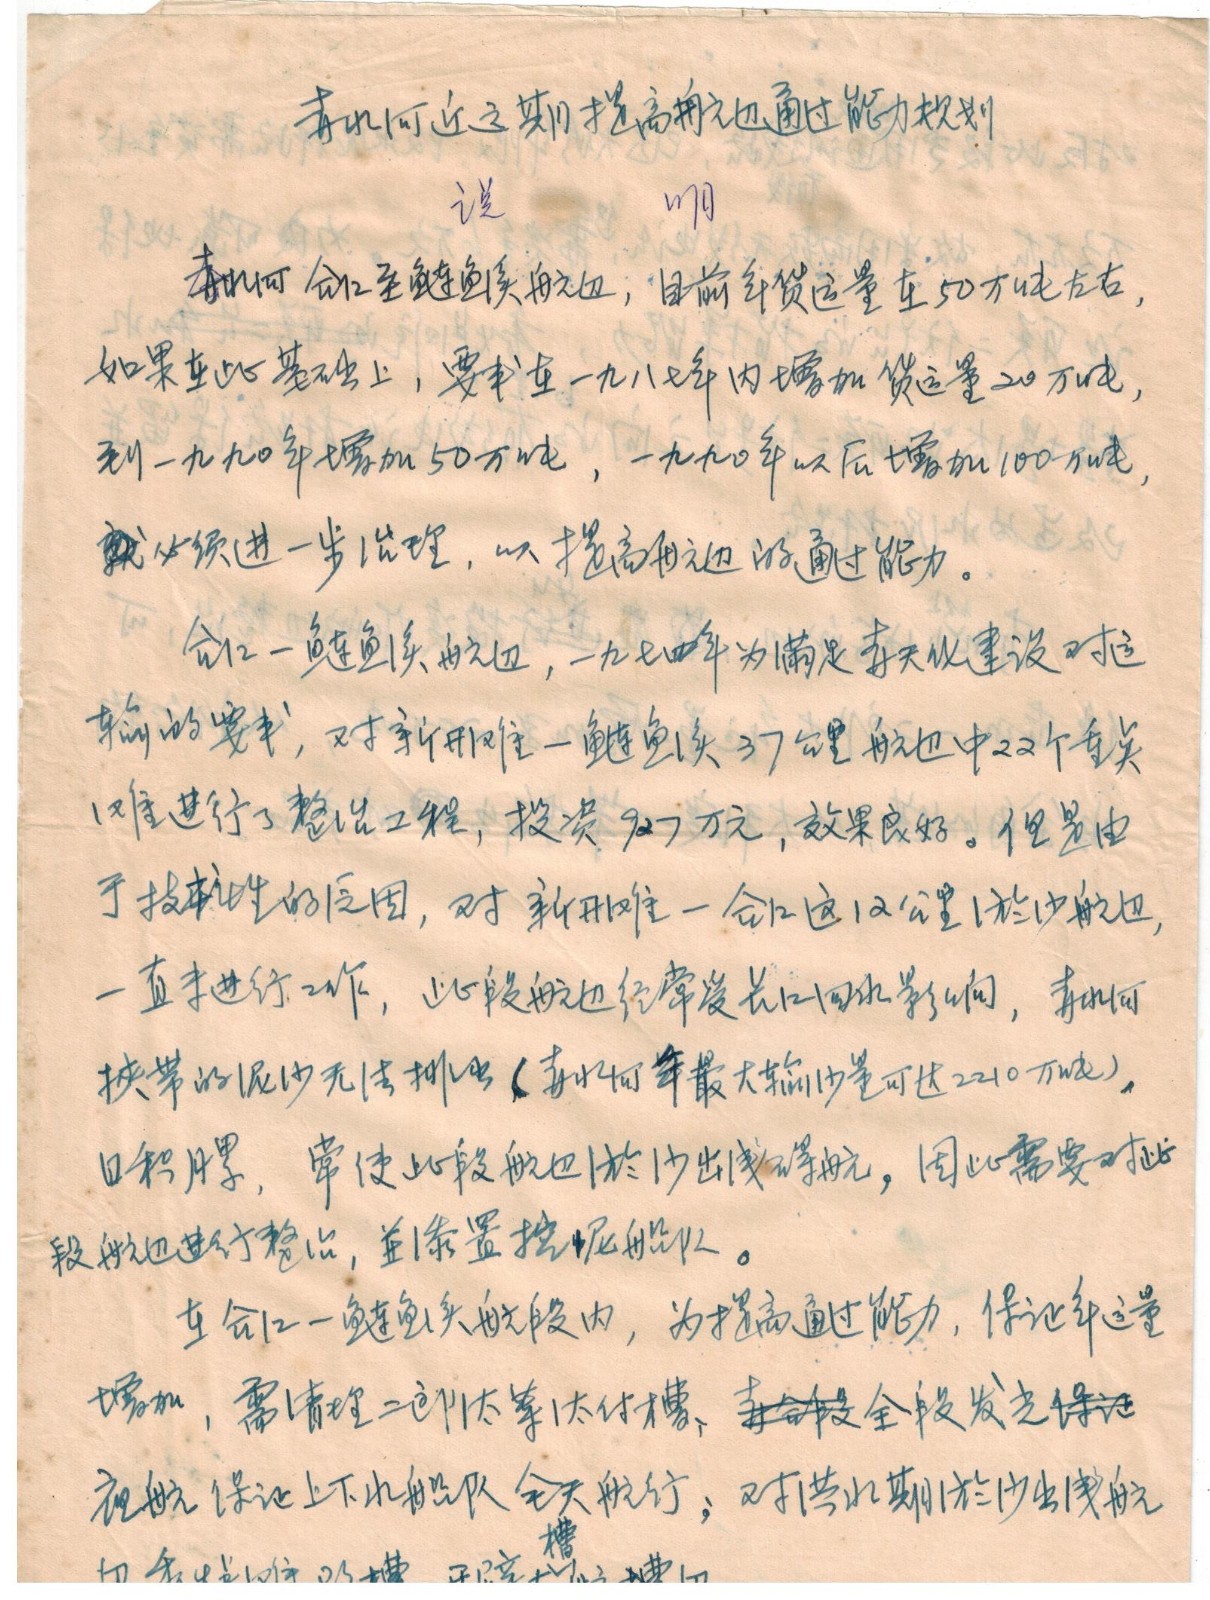 赤水河近远期提高航道通过能力规划
说 明
赤水河合江至鲢鱼溪航道，目前年货运量在50万吨左右，
如果在此基础上，要求在一九八七年内增加货运量20万吨，
到一九九〇年增加50万吨，一九九〇年以后增加100万吨，
就必须进一步治理，以提高航道的通过能力。
合江一鲢鱼溪航道，一九七四年为满足赤天化建设对运
输的要求，对新开滩一鲢鱼溪37公里航道中22个重点
滩进行了整治工程，投资927万元，效果良好。但是由
于技术性的原因，对新开滩一合江这12公里淤沙航道，
一直未进行工作，此段航道经常受长江回水影响，赤水河
挟带的泥沙无法排出（赤水河年最大输沙量可达2210万吨）。
日积月累，常使此段航道淤沙出浅碍航，因此需要对此
段航道进行整治，並添置挖泥船队。
在合江一鲢鱼溪航段内，为提高通过能力，保证年运量
增加，需清理二郎太 太付槽、全段发光
夜航保证上下水船队全天航行；对洪水期淤沙出浅航
槽